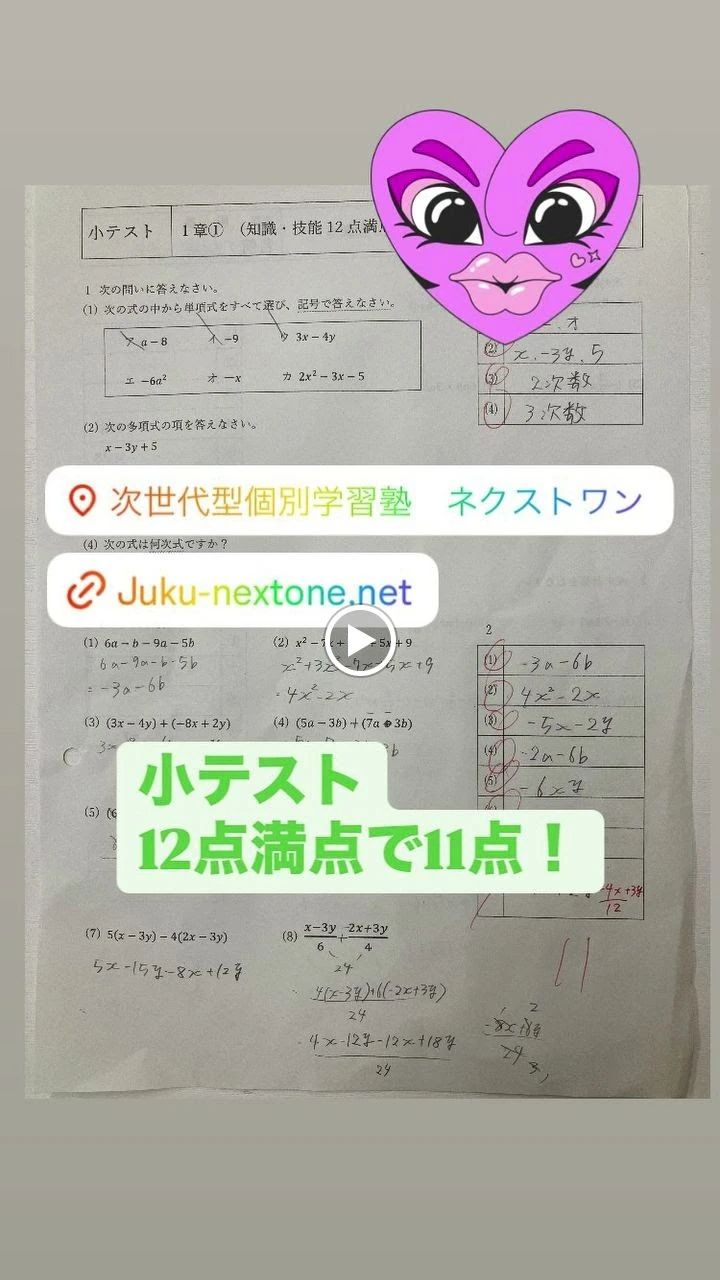 小テスト 1章① (知識・技能12点満
1 次の問いに答えなさい。
(1) 次の式の中から単項式をすべて選び、記号で答えなさい。
ア a－8 イ －9 ウ 3x－4y
エ －6a² オ －x カ 2x²－3x－5
(2) 次の多項式の項を答えなさい。
x－3y＋5
. オ
(2) x, -3y, 5
(3) 2次数
(4) 3次数
次世代型個別学習塾 ネクストワン
(4) 次の式は何次式ですか？
Juku-nextone.net
(1) 6a－b－9a－5b
6a-9a-b-5b
= -3a-6b
(2) x²－7x＋ 5x＋9
= 4x²-2x
(3) (3x－4y)＋(－8x＋2y)
(4) (5a－3b)＋(7a 3b)
2
(1) -3a-6b
(2) 4x²-2x
(3) -5x-2y
(4) -2a-6b
(5) -6xy
小テスト
12点満点で11点！
(5) (6
-4x+3y
12
(7) 5(x－3y)－4(2x－3y)
5x-15y-8x+12y
(8) x－3y/6 + -2x＋3y/4
24
4(x-3y)+6(-2x+3y)
24
4x-12y-12x+18y
24
11